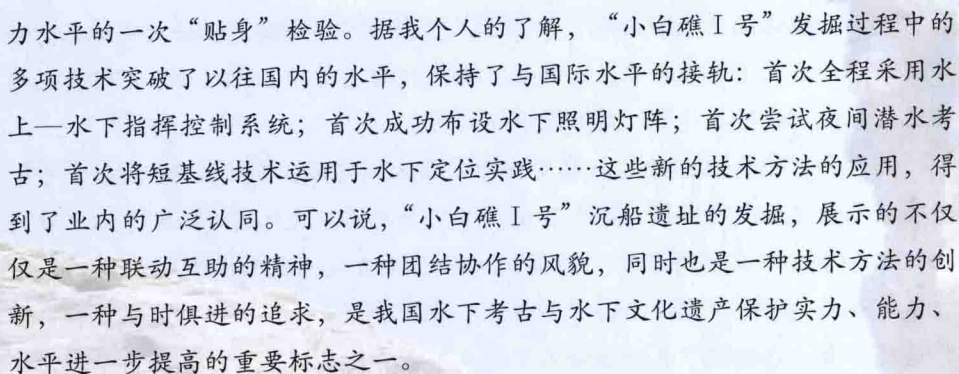 力水平的一次“贴身”检验。据我个人的了解，“小白礁Ⅰ号”发掘过程中的
多项技术突破了以往国内的水平，保持了与国际水平的接轨：首次全程采用水
上—水下指挥控制系统；首次成功布设水下照明灯阵；首次尝试夜间潜水考
古；首次将短基线技术运用于水下定位实践……这些新的技术方法的应用，得
到了业内的广泛认同。可以说，“小白礁Ⅰ号”沉船遗址的发掘，展示的不仅
仅是一种联动互助的精神，一种团结协作的风貌，同时也是一种技术方法的创
新，一种与时俱进的追求，是我国水下考古与水下文化遗产保护实力、能力、
水平进一步提高的重要标志之一。